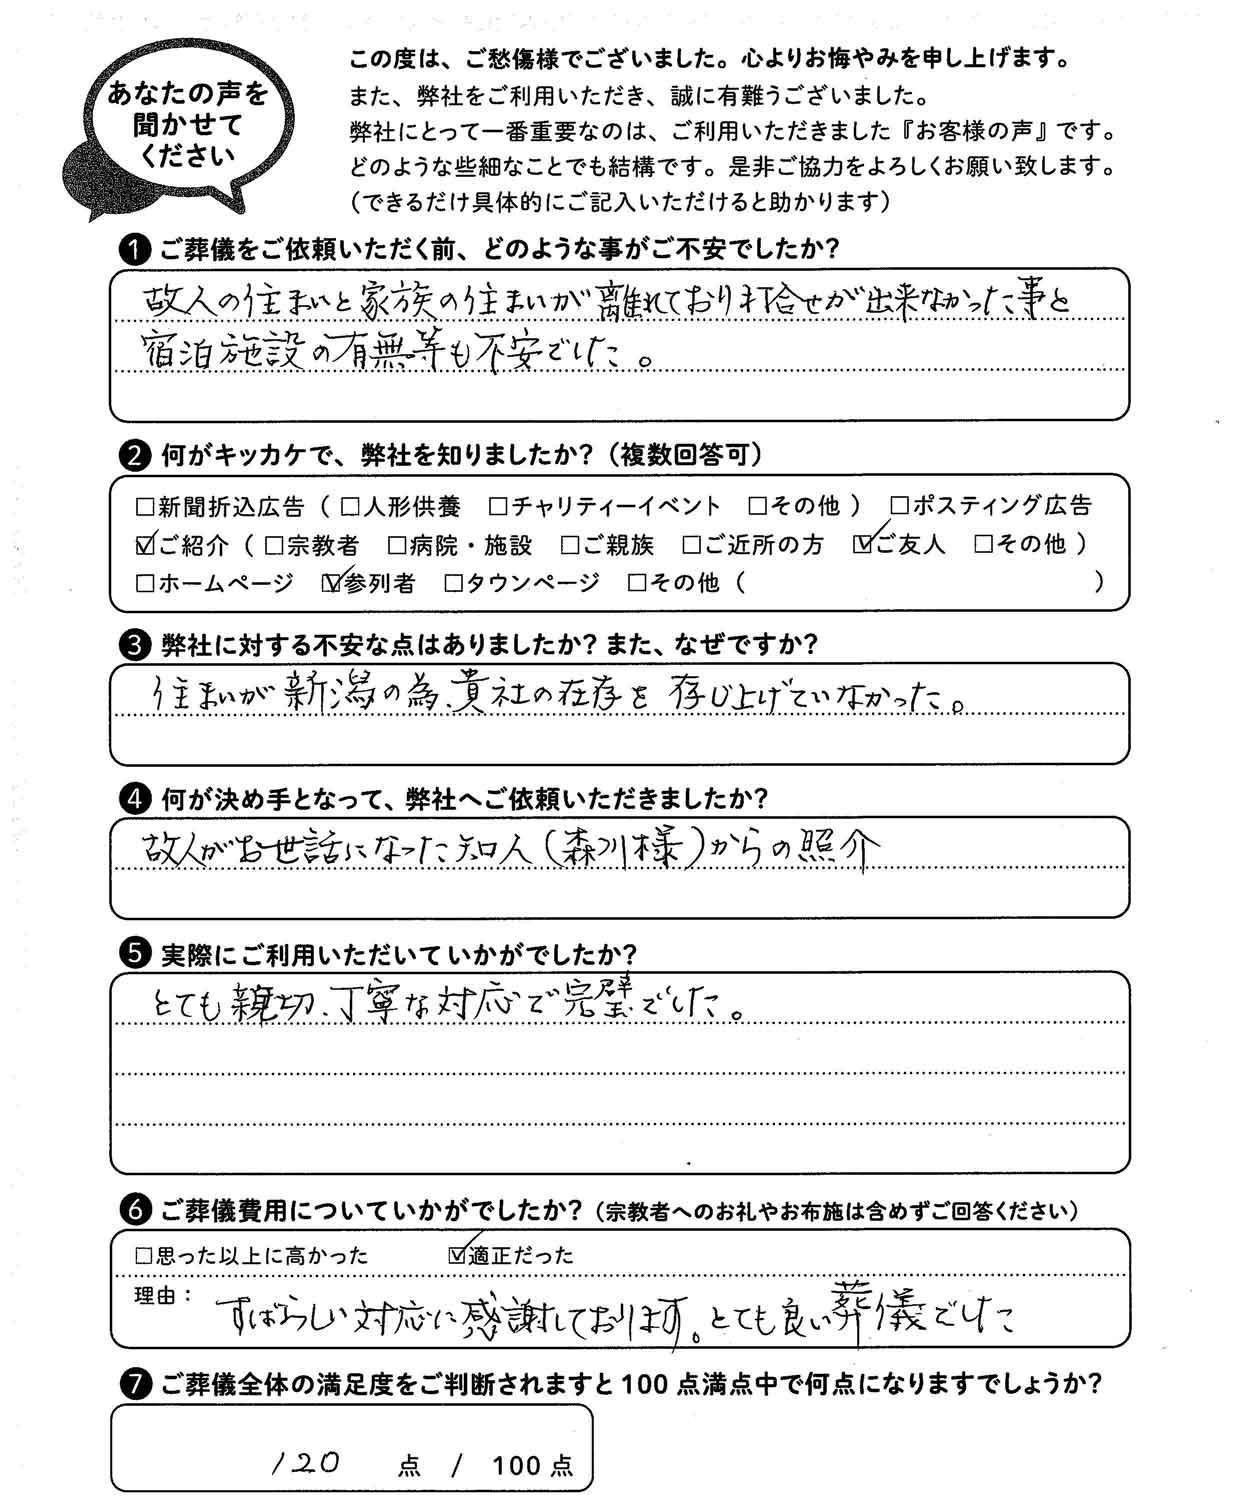 あなたの声を
聞かせて
ください
この度は、ご愁傷様でございました。心よりお悔やみを申し上げます。
また、弊社をご利用いただき、誠に有難うございました。
弊社にとって一番重要なのは、ご利用いただきました『お客様の声』です。
どのような些細なことでも結構です。是非ご協力をよろしくお願い致します。
(できるだけ具体的にご記入いただけると助かります)
❶ ご葬儀をご依頼いただく前、どのような事がご不安でしたか?
故人の住まいと家族の住まいが離れており打合せが出来なかった事と
宿泊施設の有無等も不安でした。
❷ 何がキッカケで、弊社を知りましたか?(複数回答可)
□新聞折込広告(□人形供養 □チャリティーイベント □その他) □ポスティング広告
☑ご紹介(□宗教者 □病院・施設 □ご親族 □ご近所の方 ☑ご友人 □その他)
□ホームページ ☑参列者 □タウンページ □その他( )
❸ 弊社に対する不安な点はありましたか?また、なぜですか?
住まいが新潟の為、貴社の在存を存じ上げていなかった。
❹ 何が決め手となって、弊社へご依頼いただきましたか?
故人がお世話になった知人(森川様)からの照介
❺ 実際にご利用いただいていかがでしたか?
とても親切、丁寧な対応で完璧でした。
❻ ご葬儀費用についていかがでしたか?(宗教者へのお礼やお布施は含めずご回答ください)
□思った以上に高かった ☑適正だった
理由: すばらしい対応に感謝しております。とても良い葬儀でした
❼ ご葬儀全体の満足度をご判断されますと100点満点中で何点になりますでしょうか?
120 点 / 100点